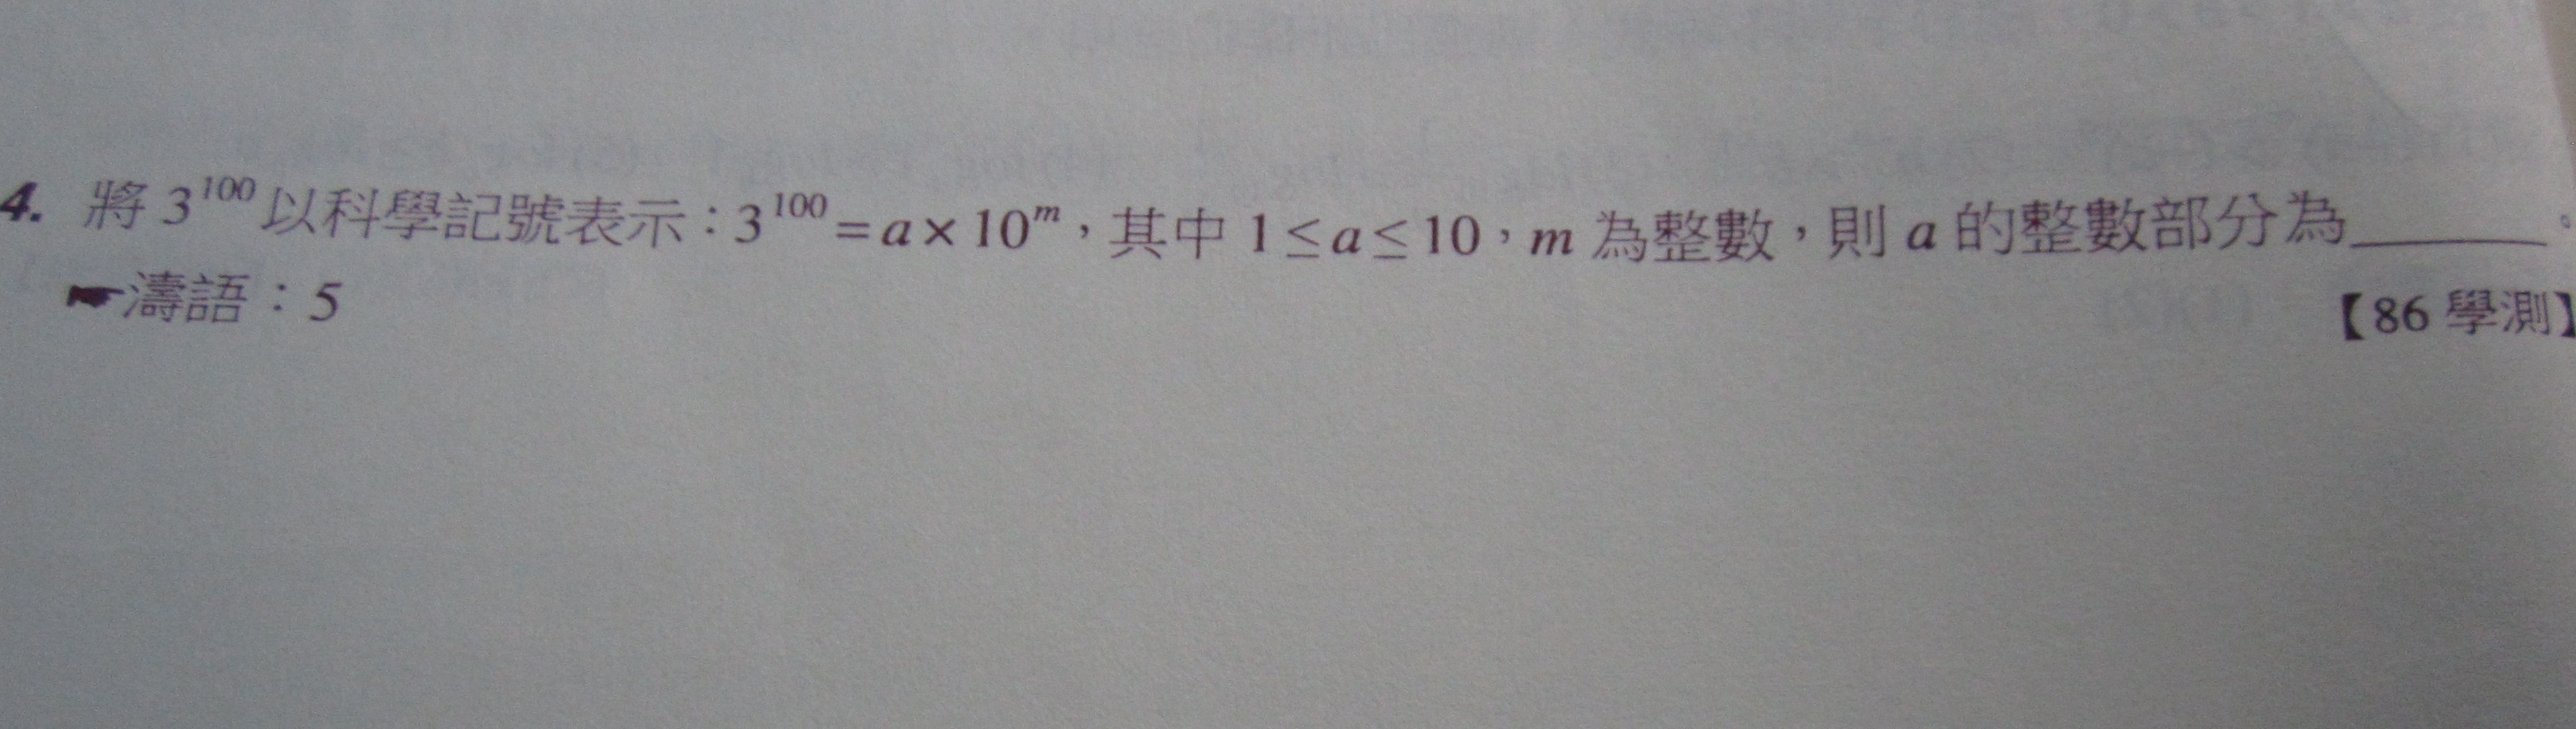 4. 將 3^100 以科學記號表示：3^100 = a × 10^m，其中 1 ≤ a ≤ 10，m 為整數，則 a 的整數部分為______。
☛濤語：5
【86 學測】